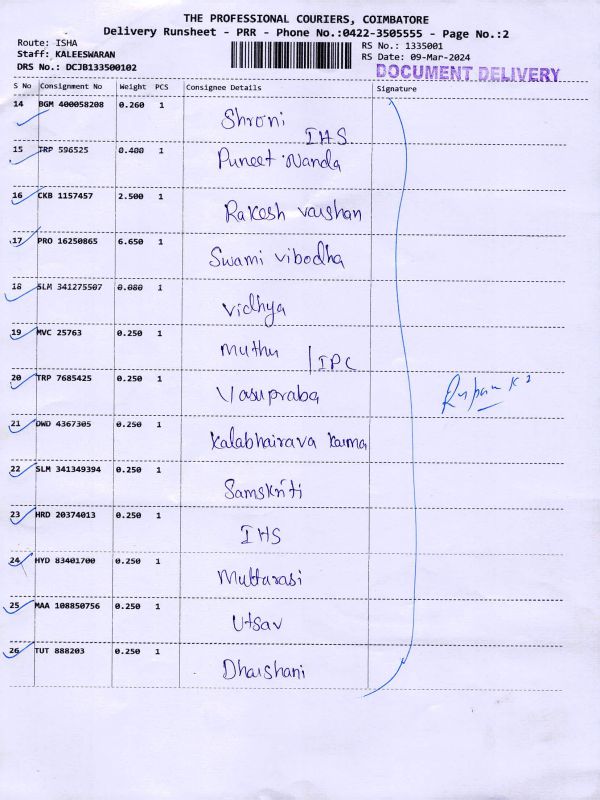 THE PROFESSIONAL COURIERS, COIMBATORE
Delivery Runsheet - PRR - Phone No.:0422-3505555 - Page No.:2
Route: ISHA
Staff: KALEESWARAN
DRS No.: DCJB133500102
RS No.: 1335001
RS Date: 09-Mar-2024
DOCUMENT DELIVERY
S No Consignment No Weight PCS Consignee Details Signature
14 BGM 400058208 0.260 1 Shroni IHS
15 TRP 596525 0.400 1 Puneet Nanda
16 CKB 1157457 2.500 1 Rakesh vaishan
17 PRO 16250865 6.650 1 Swami vibodha
18 SLM 341275507 0.080 1 Vidhya
19 MVC 25763 0.250 1 Muthu | IPC
20 TRP 7685425 0.250 1 Vasupraba
21 DWD 4367305 0.250 1 Kalabhairava Karma
22 SLM 341349394 0.250 1 Samskriti
23 HRD 20374013 0.250 1 IHS
24 HYD 83401700 0.250 1 Muttarasi
25 MAA 108850756 0.250 1 Utsav
26 TUT 888203 0.250 1 Dharshani